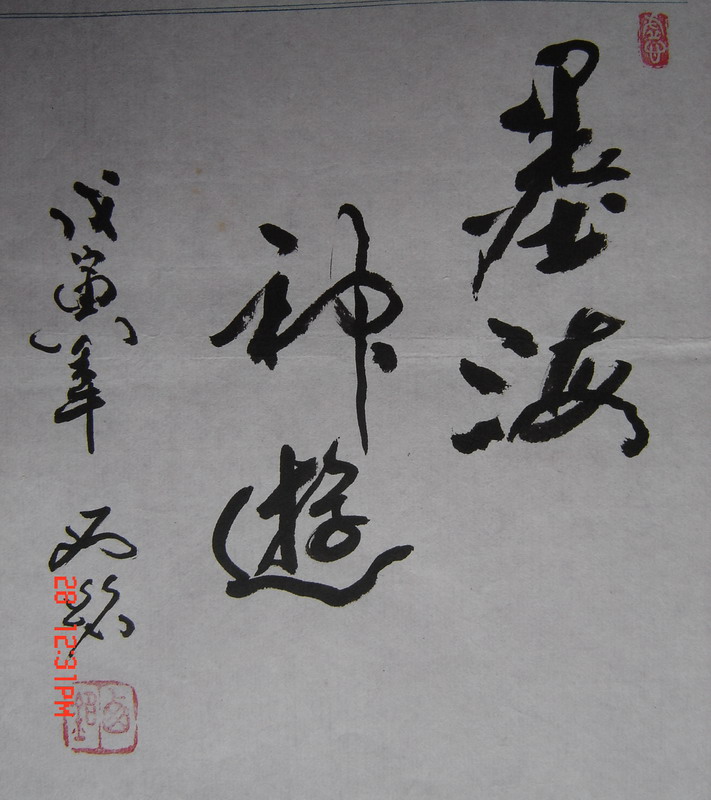 墨海
神遊
戊寅年
28 12:31PM